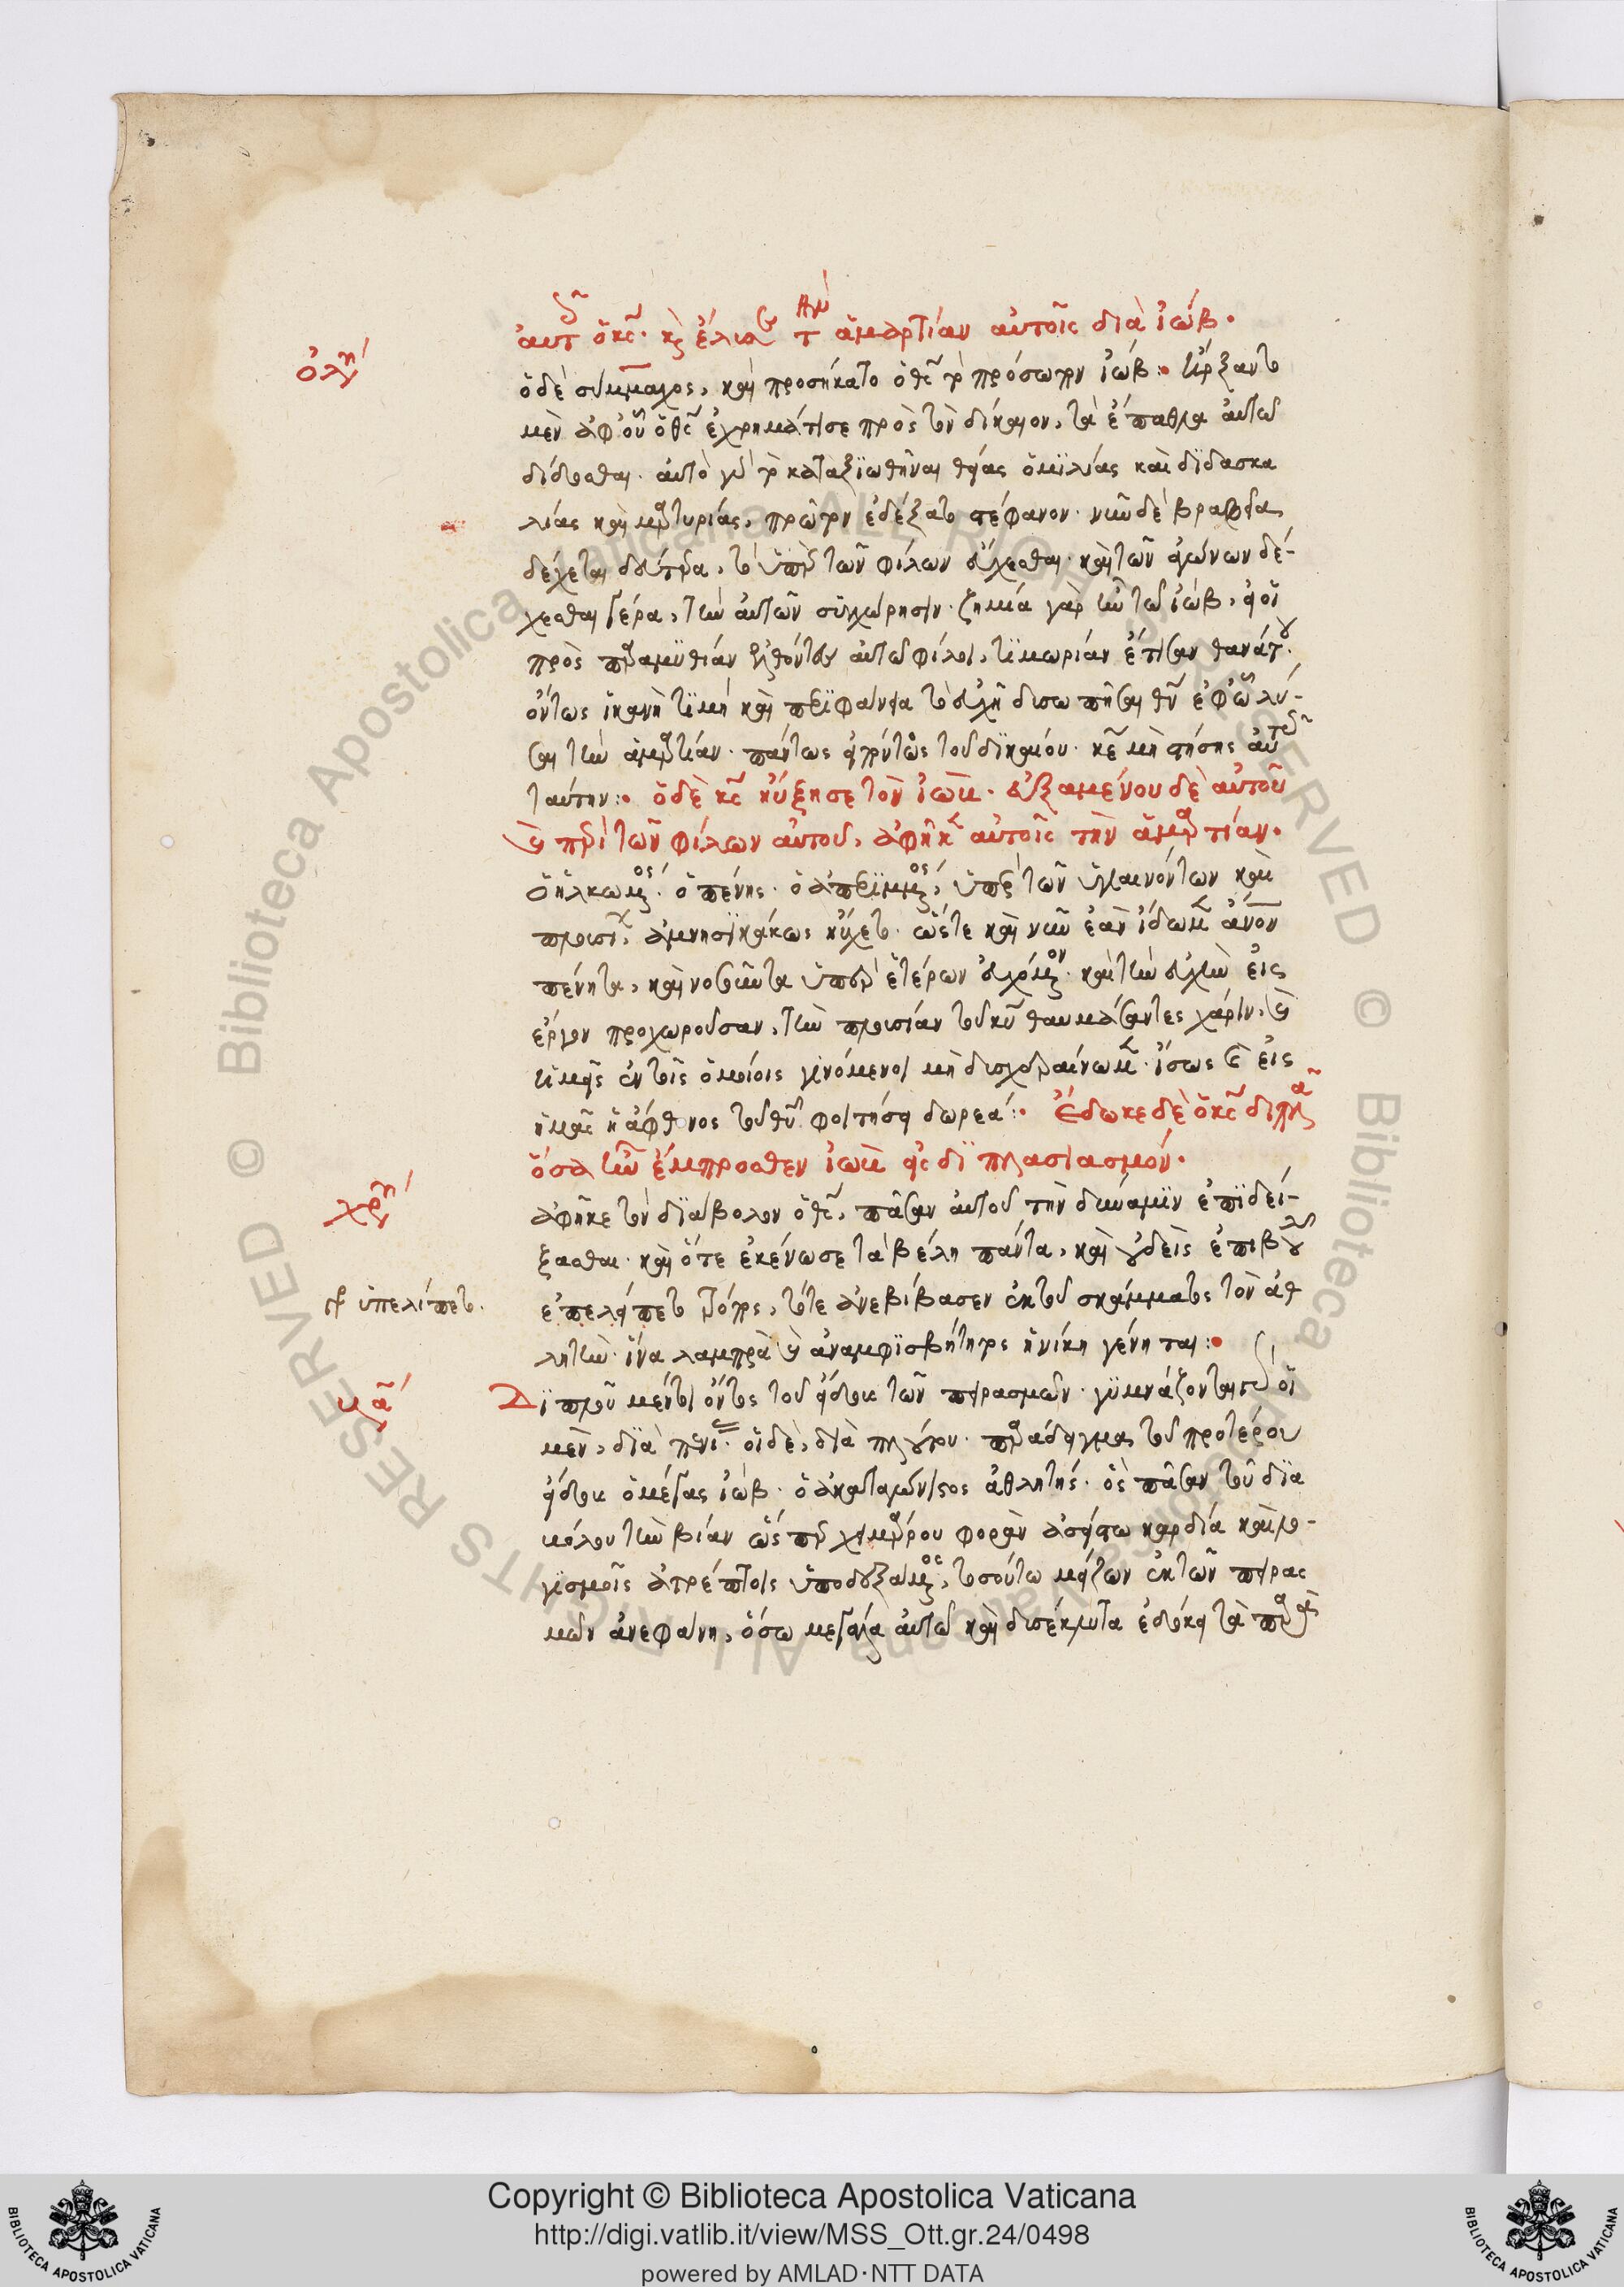 αὐτοῖς ὁ κς. καὶ ἔλυσε τὴν ἁμαρτίαν αὐτοῖς διὰ ἰώβ.
ὀλυ
ὁ δὲ σύμμαχος, καὶ προσήκατο ὁ θς τὸ πρόσωπον ἰώβ: ἤρξαντο
μὲν ἀφ' οὗ ὁ θς ἐχρημάτισε πρὸς τὸν δίκαιον, τὰ ἔπαθλα αὐτῶ
δίδοσθαι. αὐτὸ γὰρ τὸ καταξιωθῆναι θείας ὁμιλίας καὶ διδασκα
λίας καὶ μαρτυρίας, πρῶτον ἐδέξατο στέφανον. νῦν δὲ βραβεῖα
δέχεται δεύτερα, τὸ ὑπὲρ τῶν φίλων εὔχεσθαι. καὶ τῶν ἀγώνων δέ-
χεσθαι γέρα, τὴν αὐτῶν συγχώρησιν. ζημία γὰρ ἦν τῶ ἰώβ, εἰ οἱ
πρὸς παραμυθίαν ἐλθόντες αὐτῶ φίλοι, τιμωρίαν ἔτισαν θανάτου.
ὄντως ἱκανὴ τιμὴ καὶ περιφάνεια τὸ εὐχῆ δυσωπῆσαι θν ἐφ' ὧ λύ-
σαι τὴν ἁμαρτίαν. πάντως εἰπόντος τοῦ δικαίου. κε μὴ στήσης αὐτοῖς
ταύτην: ὁ δὲ κς ηὔξησε τὸν ἰώβ. εὐξαμένου δὲ αὐτοῦ
καὶ περὶ τῶν φίλων αὐτοῦ, ἀφῆκεν αὐτοῖς τὴν ἁμαρτίαν.
ὁ ἡλκωμένος. ὁ πένης. ὁ ἀπερριμμένος, ὑπὲρ τῶν ὑγιαινόντων καὶ
πλουσίων ἀμνησικάκως ηὔχετο. ὥστε καὶ νῦν ἐὰν ἴδωμεν ἄνον
πένητα, καὶ νοσοῦντα ὑπὲρ ἑτέρων εὐχόμενον. καὶ τὴν εὐχὴν εἰς
ἔργον προχωροῦσαν, τὴν πλουσίαν τοῦ θυ θαυμάσαντες χάριν, καὶ
ἡμεῖς ἐν τοῖς ὁμοίοις γινόμενοι μὴ δυσχεραίνωμεν. ἴσως καὶ εἰς
ἡμᾶς ἡ ἄφθονος τοῦ θυ φοιτήσει δωρεά: Ἔδωκε δὲ ὁ κς διπλᾶ
ὅσα ἦν ἔμπροσθεν ἰὼβ εἰς διπλασιασμόν.
χρυ
ἀφῆκε τὸν διάβολον ὁ θς, πᾶσαν αὐτοῦ τὴν δύναμιν ἐπιδεί-
ξασθαι. καὶ ὅτε ἐκένωσε τὰ βέλη πάντα, καὶ οὐδεὶς ἐπιβουλῆς
γρ ὑπελίπετο.
ἐπελείπετο τρόπος, τότε ἀνεβίβασεν ἐκ τοῦ σκάμματος τὸν ἀθ
λητήν. ἵνα λαμπρὰ καὶ ἀναμφισβήτητος ἡ νίκη γένηται:
Διπλοῦ μέντοι ὄντος τοῦ εἴδους τῶν πειρασμῶν. γυμνάζονται γὰρ οἱ
μὲν, διὰ πενίας. οἱ δὲ, διὰ πλούτου. παράδειγμα τοῦ προτέρου
εἴδους ὁ μέγας ἰώβ. ὁ ἀκαταγώνιστος ἀθλητής. ὃς πᾶσαν τοῦ δια
βόλου τὴν βίαν ὥσπερ χειμάρρου φορὰν ἀσείστω καρδία καὶ λο-
γισμοῖς ἀτρέπτοις ὑποδεξάμενος, τοσούτω μείζων ἐκ τῶν πειρασ
μῶν ἀνεφάνη, ὅσω μεγάλα αὐτῶ καὶ δυσέκλυτα ἐδόκει τὰ παρὰ
Copyright © Biblioteca Apostolica Vaticana
http://digi.vatlib.it/view/MSS_Ott.gr.24/0498
powered by AMLAD·NTT DATA